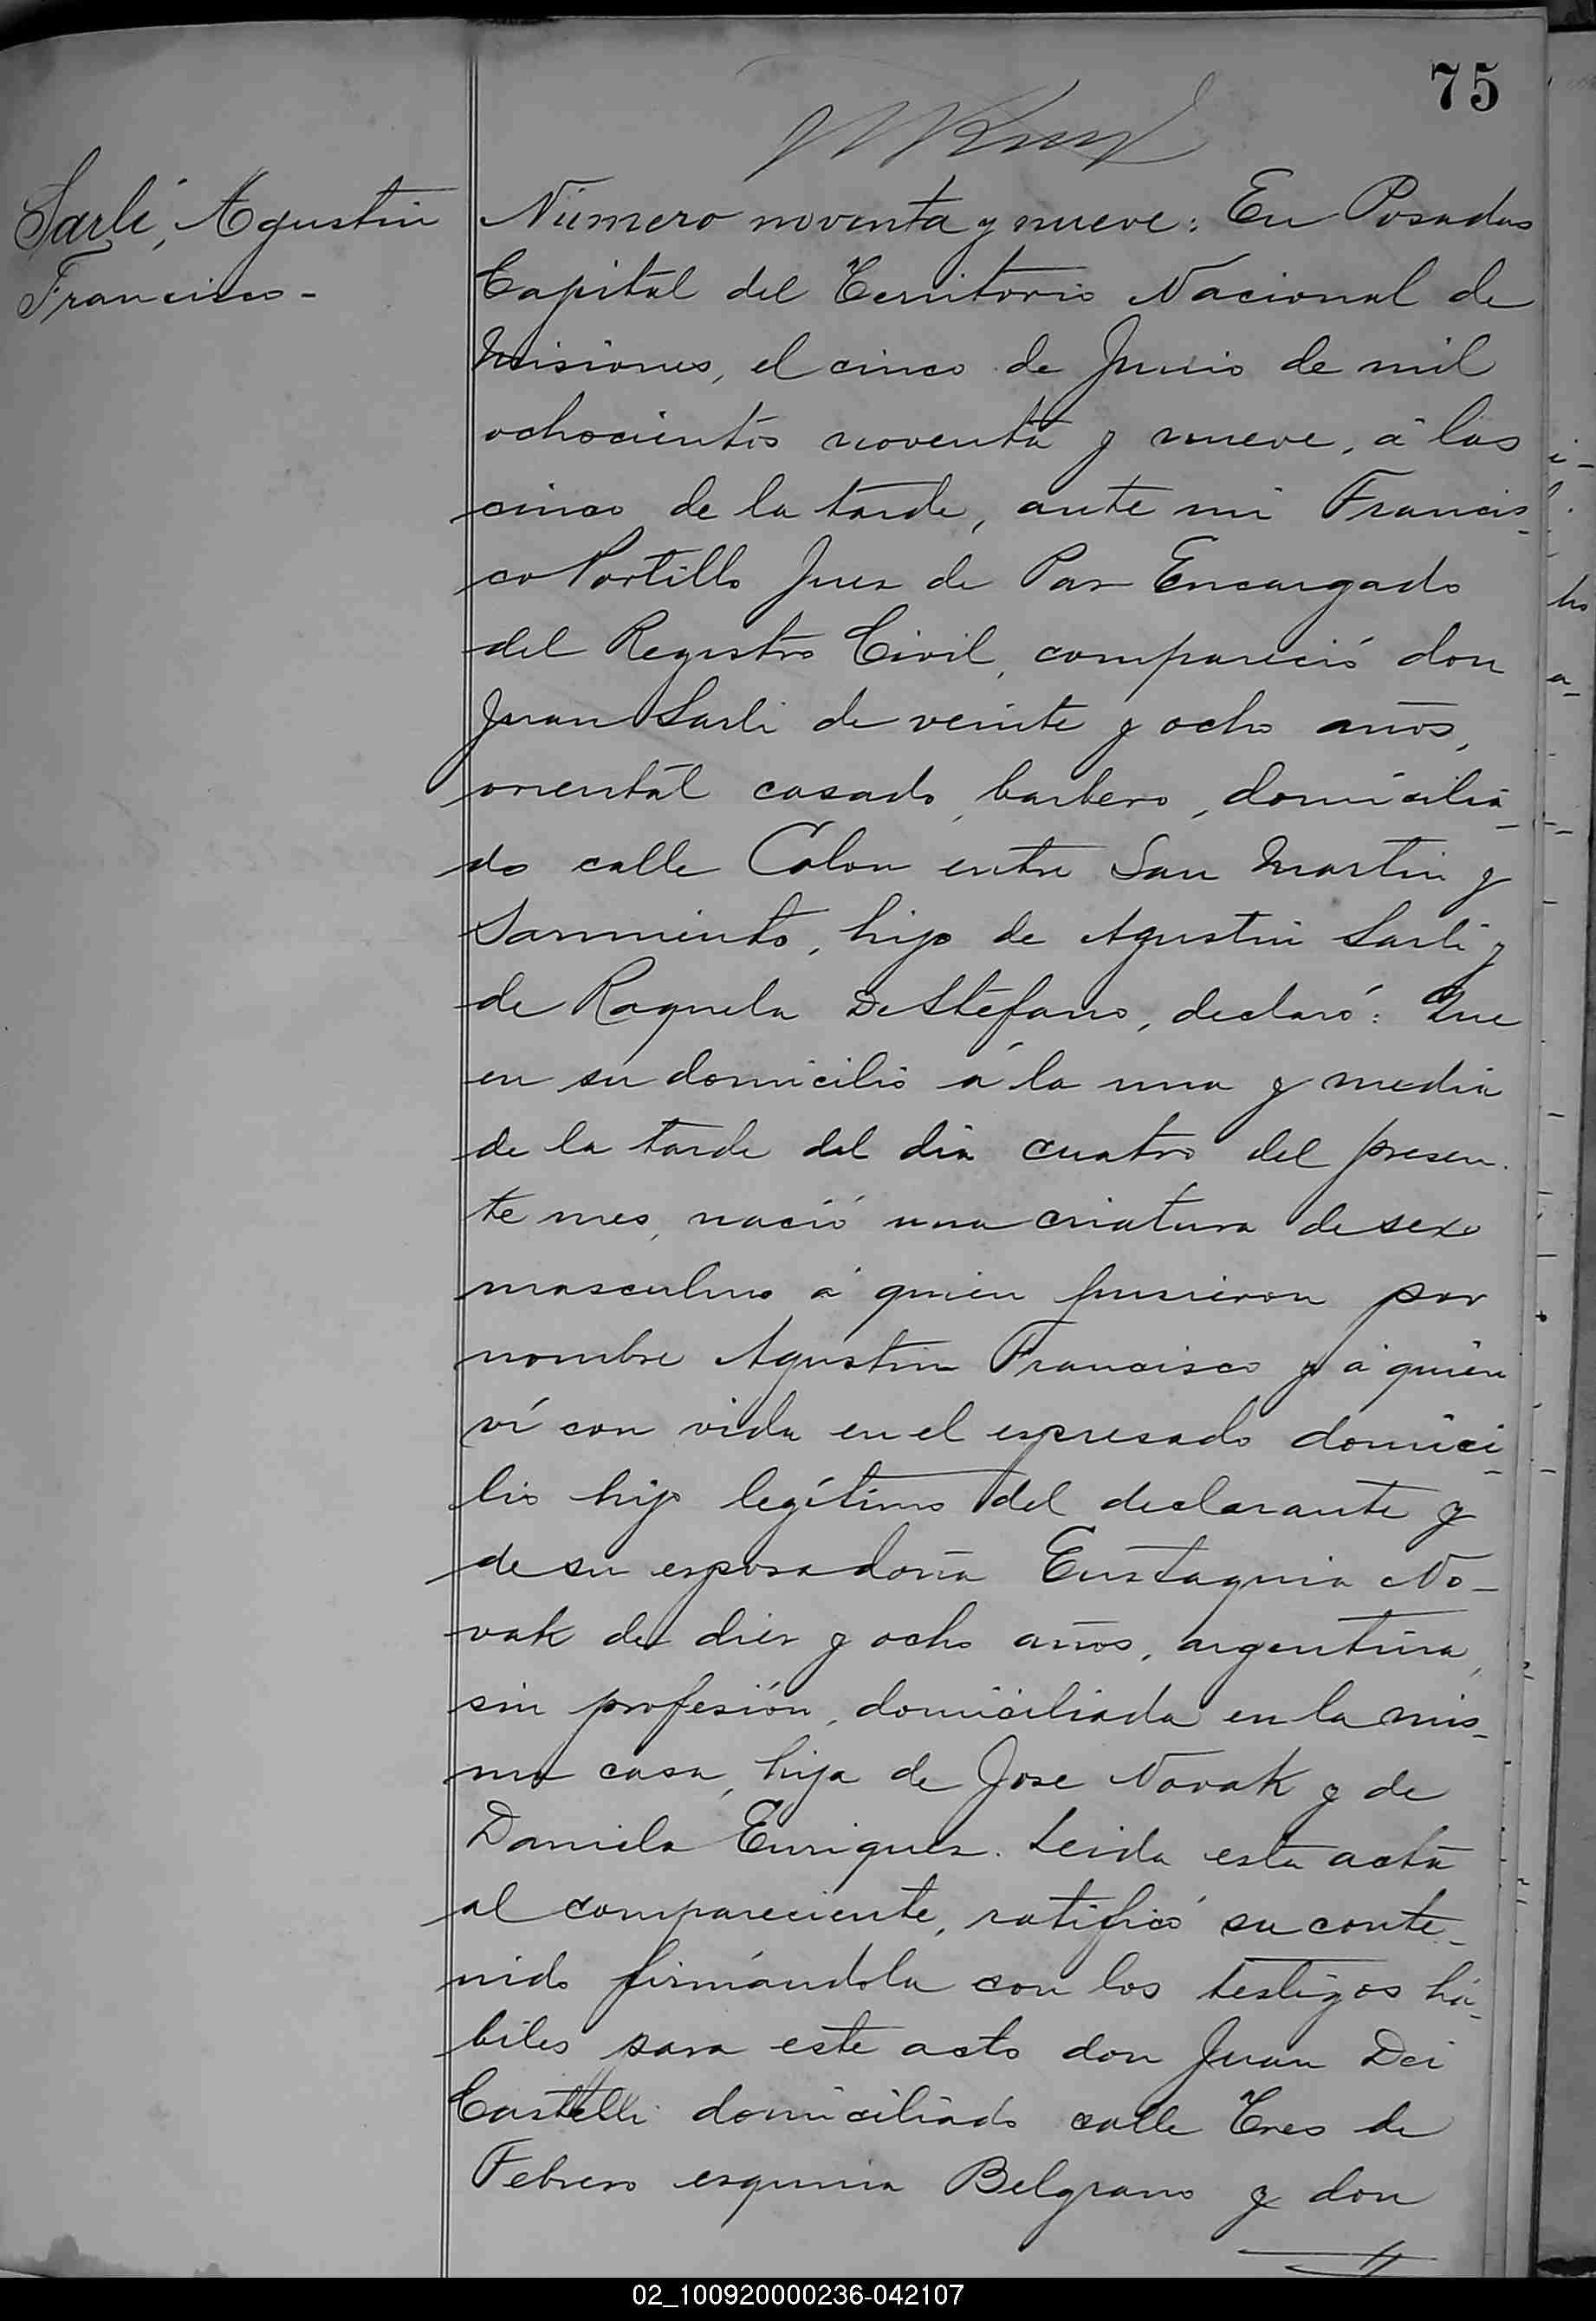 75
Sarli, Agustin
Francisco-
Número noventa y nueve: En Posadas
Capital del Territorio Nacional de
Misiones, el cinco de Junio de mil
ochocientos noventa y nueve, á las
cinco de la tarde, ante mi Francis-
co Portillo Juez de Paz Encargado
del Registro Civil, compareció don
Juan Sarli de veinte y ocho años,
oriental casado, barbero, domicilia-
do calle Colon entre San Martin y
Sarmiento, hijo de Agustin Sarli y
de Raquela DeStefano, declaró: Que
en su domicilio á la una y media
de la tarde del dia cuatro del presen-
te mes, nació una criatura de sexo
masculino á quien pusieron por
nombre Agustin Francisco y á quien
ví con vida en el espresado domici-
lio hijo legítimo del declarante y
de su esposa doña Eustaquia No-
vak de diez y ocho años, argentina,
sin profesión, domiciliada en la mis-
ma casa, hija de Jose Novak y de
Daniela Enriquez. Leida esta acta
al compareciente, ratificó su conte-
nido firmándola con los testigos há-
biles para este acto don Juan Dei
Castelli domiciliado calle Tres de
Febrero esquina Belgrano y don
02_100920000236-042107